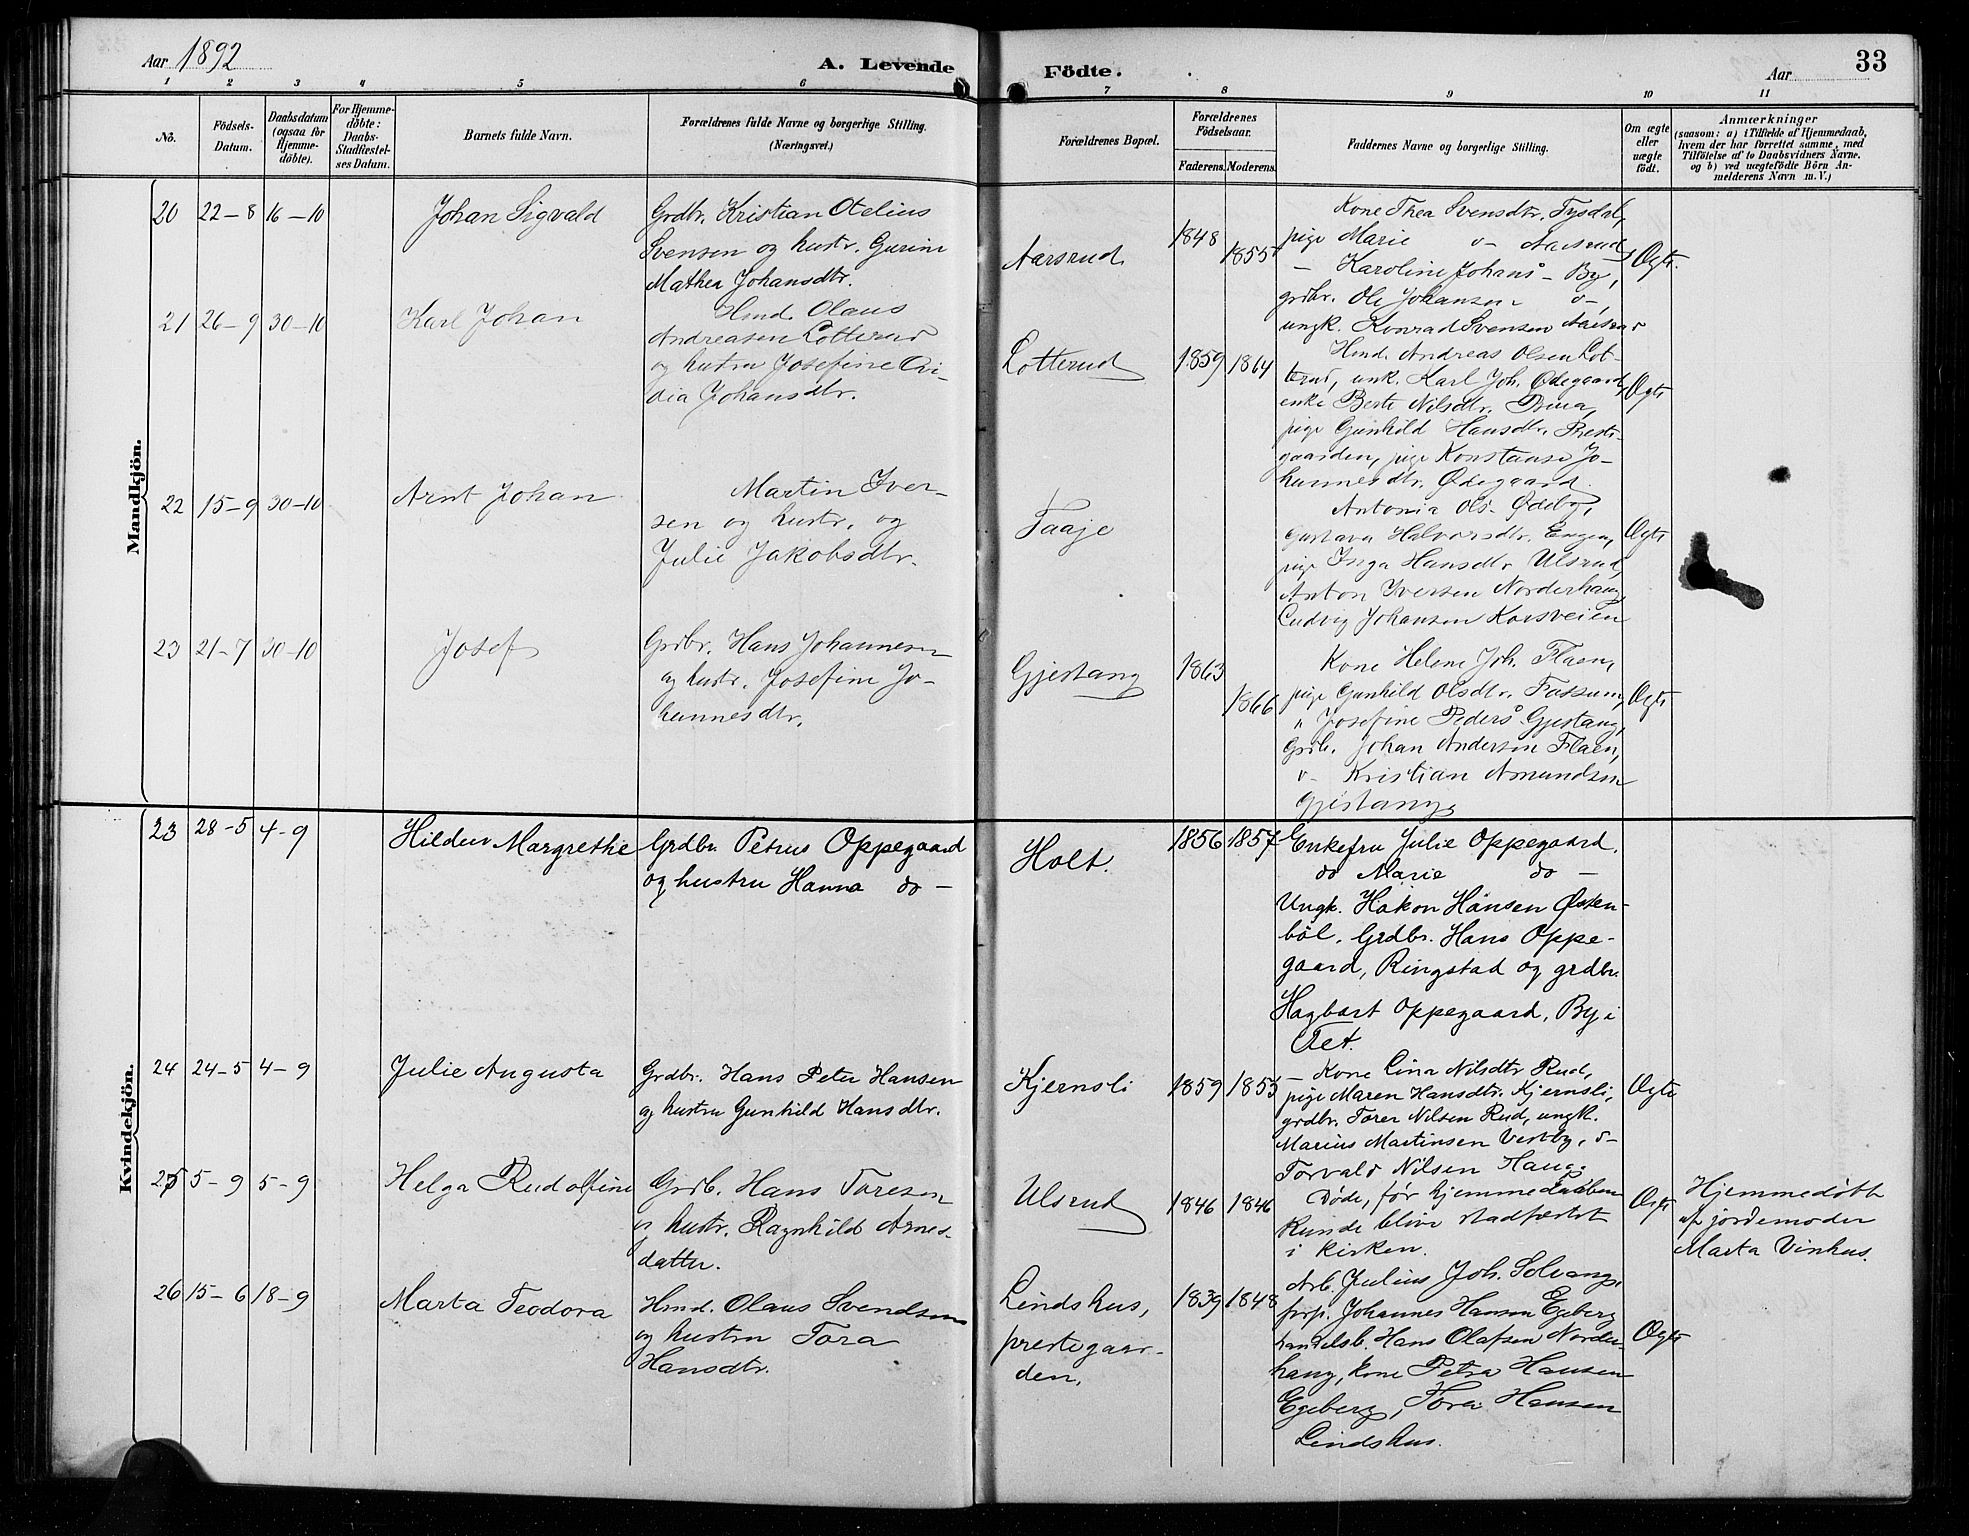 Aar 1892
A. Levende Födte.
Aar
33
1 2 3 4 5 6 7 8 9 10 11
No.
Födsels-Datum.
Daabsdatum (ogsaa for Hjemme-döbte).
For Hjemme-döbte: Daabs-Stadfæstel-ses Datum.
Barnets fulde Navn.
Forældrenes fulde Navne og borgerlige Stilling.
(Næringsvei.)
Forældrenes Bopæl.
Forældrenes Födselsaar.
Faderens. Moderens.
Faddernes Navne og borgerlige Stilling.
Om ægte eller uægte födt.
Anmærkninger
(saasom: a) i Tilfælde af Hjemmedaab,
hvem der har forrettet samme, med
Tilföielse af to Daabsvidners Navne.
og b) ved uægtefödte Börn An-
melderens Navn m. V.)
Mandkjön.
20 22-8 16-10 Johan Sigvald
Grdbr. Kristian Otelius
Svensen og hustr. Gurine
Mathea Johansdtr.
Aarsrud 1848 1855
Kone Thea Svensdtr. Tysdal,
pige Marie o- Aarsrud,
- Karoline Johans- By,
grdbr. Ole Johansen o-,
ungk. Konrad Svensen Aarsrud
Ægte.
21 26-9 30-10 Karl Johan
Hmd. Olaus
Andreasen Lotterud
og hustru Josefine
Johansdtr.
Lotterud 1859 1864
Hmd. Andreas Olsen Lot-
terud, unk. Karl Joh. Ødegaard,
enke Berte Nilsdtr.
pige Gunhild Hansdtr. Prest-
gaarden, pige Konstanse Jo-
hannesdtr. Ødegaard.
Ægte
22 15-9 30-10 Arnt Johan
Martin Iver-
sen og hustr. og
Julie Jakobsdtr.
Taaje
Antonia Ols- Ødeby,
Gustava Halvorsdtr. Engen,
pige Inga Hansdtr Ulsrud,
Anton Iversen Norderhaug,
Ludvig Johansen Korsveien
Ægte
23 21-7 30-10 Josef
Grdbr. Hans Johannesen
og hustr. Josefine Jo-
hannesdtr.
Gjestang 1863 1866
Kone Helene Joh. Flaen,
pige Gunhild Olsdtr. Fossum,
" Josefine Peders- Gjestang,
Grdb. Johan Andersen Flaen,
o- Kristian Amundsen
Gjestang,
Ægte
Kvindekjön.
23 28-5 4-9 Hildur Margrethe
Grdbr. Petrus Oppegaard
og hustru Hanna do -
Holt. 1856 1857
Enkefru Julie Oppegaard.
do Marie do -
Ungk. Håkon Hansen Østen-
böl. Grdbr. Hans Oppe-
gaard, Ringstad og grdbr.
Hagbart Oppegaard, By i
Tret.
24 24-5 4-9 Julie Augusta
Grdbr. Hans Peter Hansen
og hustru Gunhild Hansdtr.
Kjernsli 1859 1855
- Kone Lina Nilsdtr Rud,
pige Maren Hansdtr. Kjernsli,
grdbr. Torer Nilsen Rud, ungk.
Marius Martinsen Vestby, o-
Torvald Nilsen Haug.
Ægte
25 5-9 5-9 Helga Rudolfine
Grdb. Hans Toresen
og hustr. Ragnhild Arnes-
datter.
Ulsrud 1846 1846
Døde, før hjemmedaaben
kunde blive stadfæstet
i kirken.
Ægte
Hjemmedøbt
af jordemoder
Marta Vinhus.
26 15-6 18-9 Marta Teodora
Hmd. Olaus Svendsen
og hustru Tora
Hansdtr.
Lindshus,
prestegaar-
den, 1839 1848
Arb. Julius Joh. Solvang,
forp. Johannes Hansen Egeberg
handelsb. Hans Olafsen Norder-
haug, kone Petra Hansen
Egeberg, Tora Hansen
Lindshus.
Ægte